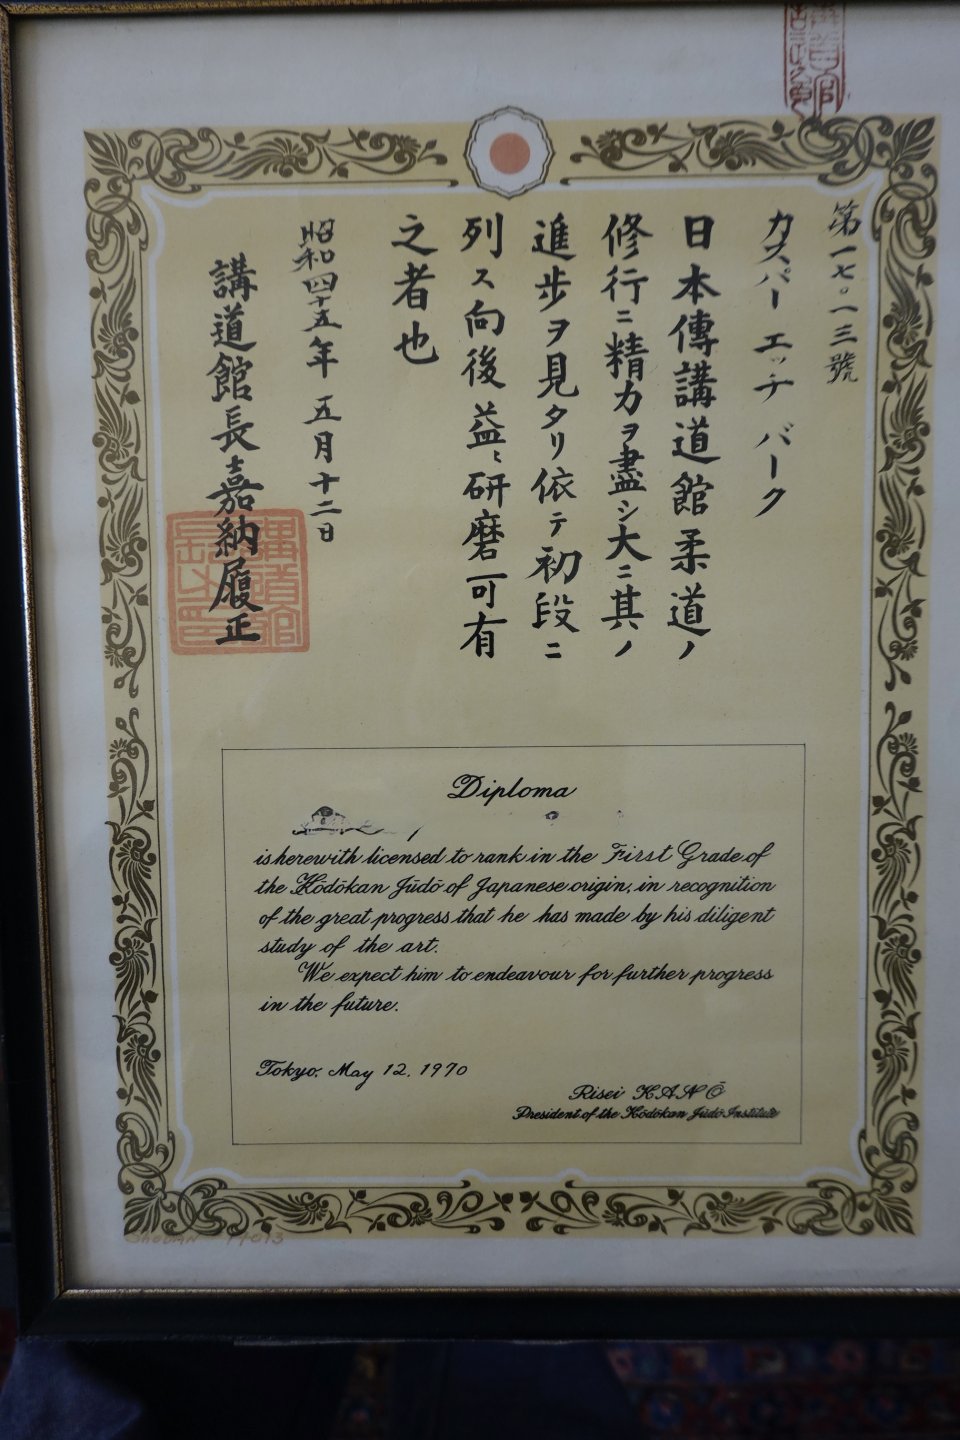 第一七〇一三號
カスパー エッチ バーク
日本傳講道館柔道ノ
修行ニ精力ヲ盡シ大ニ其ノ
進歩ヲ見タリ依テ初段ニ
列ス向後益〻研磨可有
之者也
昭和四十五年 五月十二日
講道館長嘉納履正
Diploma
is herewith licensed to rank in the First Grade of
the Kōdōkan Jūdō of Japanese origin, in recognition
of the great progress that he has made by his diligent
study of the art.
We expect him to endeavour for further progress
in the future.
Tokyo, May 12, 1970
Risei KANŌ
President of the Kōdōkan Jūdō Institute